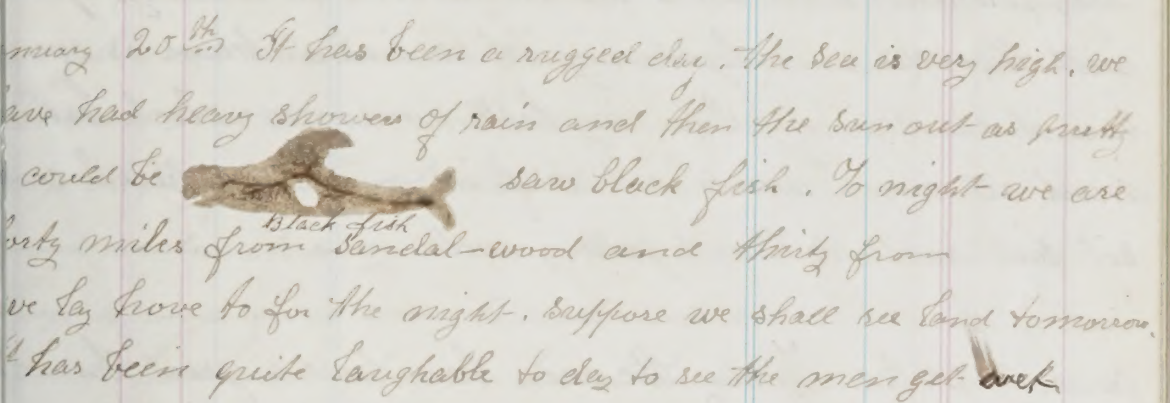 nuary 20th It has been a rugged day. The sea is very high. we
ave had heavy showers of rain and then the sun out as pretty
could be saw black fish. To night we are
Black fish
orty miles from Sandal-wood and thirty from
ve lay hove to for the night. suppose we shall see land tomorrow.
t has been quite laughable to day to see the men get wet